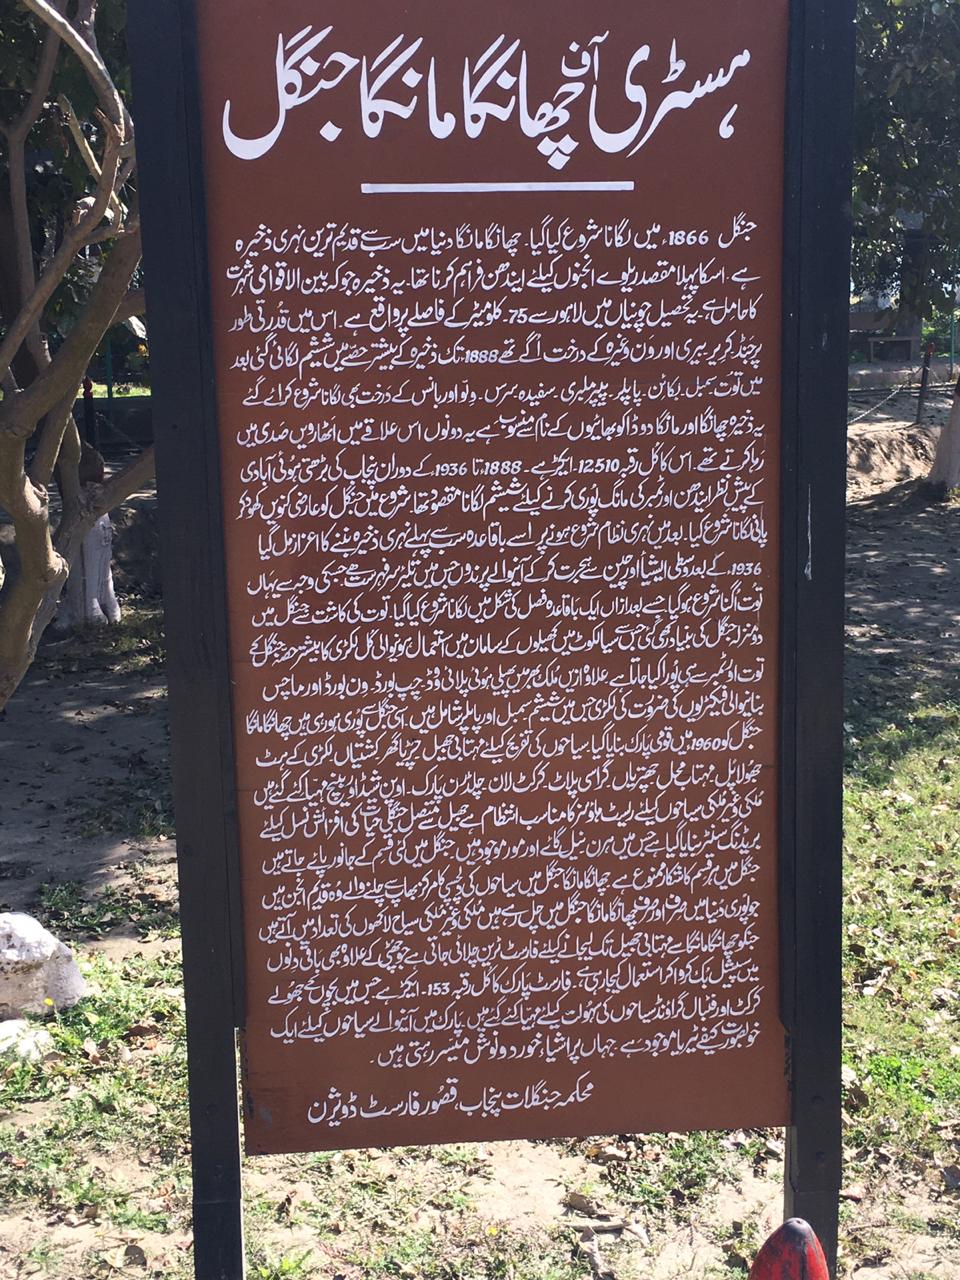 ہسٹری آف چھانگا مانگا جنگل
جنگل 1866ء میں لگانا شروع کیا گیا۔ چھانگا مانگا دنیا میں سب سے قدیم ترین نہری ذخیرہ
ہے۔ اسکا پہلا مقصد ریلوے انجنوں کیلئے ایندھن فراہم کرنا تھا۔ یہ ذخیرہ جو کہ بین الاقوامی شہرت
کا حامل ہے۔ یہ تحصیل چونیاں میں لاہور سے 75۔ کلومیٹر کے فاصلے پر واقع ہے۔ اس میں قدرتی طور
پر جنڈ کریر بیری اور ون وغیرہ کے درخت اُگے تھے 1888 تک ذخیرہ کے بیشتر حصے میں شیشم لگائی گئی بعد
میں توت۔ سمبل۔ بکائن۔ پاپلر۔ پیپر ملبری۔ سفیدہ۔ سرس۔ ولو اور بانس کے درخت بھی لگانا شروع کرائے گئے
یہ ذخیرہ چھانگا اور مانگا دو ڈاکو بھائیوں کے نام سے منسوب ہے یہ دونوں اس علاقے میں اٹھارویں صدی میں
رہا کرتے تھے۔ اس کا کل رقبہ 12510۔ ایکڑ ہے۔ 1888 تا 1936ء کے دوران پنجاب کی بڑھتی ہوئی آبادی
کے پیش نظر ایندھن اور ٹمبر کی مانگ پوری کرنے کیلئے شیشم لگانا مقصود تھا۔ شروع میں جنگل کو عارضی کنویں کھود کر
پانی لگانا شروع کیا۔ بعد میں نہری نظام شروع ہونے پر اسے باقاعدہ سب سے پہلے نہری ذخیرہ بننے کا اعزاز مل گیا
1936ء کے بعد وسطی ایشیا اور چین سے ہجرت کر کے آنیوالے پرندوں جن میں تلیر سرفہرست ہے جسکی وجہ سے یہاں
توت اُگنا شروع ہو گیا جسے بعد ازاں ایک باقاعدہ فصل کی شکل میں لگانا شروع کیا گیا۔ توت کی کاشت سے جنگل میں
دو منزلہ جنگل کی بنیاد رکھی گئی جس سے سیالکوٹ میں کھیلوں کے سامان میں استعمال ہونیوالی کل لکڑی کا بیشتر حصہ جنگل کے
توت اور ٹمبر سے ہی پورا کیا جاتا ہے علاوہ ازیں ملک بھر میں پھیلی ہوئی پلائی وڈ۔ چپ بورڈ۔ ون بورڈ اور ماچس
بنانیوالی فیکٹریوں کی ضرورت کی لکڑی جس میں شیشم سمبل اور پاپلر شامل ہیں۔ اسی جنگل سے پوری ہو رہی ہیں چھانگا مانگا
جنگل کو 1960 میں قومی پارک بنایا گیا۔ سیاحوں کی تفریح کیلئے مہتابی جھیل چڑیا گھر کشتیاں لکڑی کے ہٹ
جھولا پل۔ مہتاب محل چھتریاں۔ گراسی پلاٹ۔ کرکٹ لان۔ چلڈرن پارک۔ اوپن شیڈ اور بینچ مہیا کئے گئے ہیں
ملکی و غیر ملکی سیاحوں کیلئے ریسٹ ہاؤسز کا مناسب انتظام ہے جھیل سے متصل جنگلی حیات کی افزائش نسل کیلئے
بریڈنگ سنٹر بنایا گیا ہے جس میں ہرن نیل گائے اور مور موجود ہیں۔ جنگل میں کئی قسم کے جانور پائے جاتے ہیں
جنگل میں ہر قسم کا شکار ممنوع ہے چھانگا مانگا جنگل میں سیاحوں کی دلچسپی کا مرکز بھاپ سے چلنے والے وہ قدیم انجن ہیں
جو پوری دنیا میں صرف اور صرف چھانگا مانگا جنگل میں چل رہے ہیں ملکی و غیر ملکی سیاح لاکھوں کی تعداد میں آتے ہیں
جنکو چھانگا مانگا سے مہتابی جھیل تک لیجانے کیلئے فارسٹ ٹرین چلائی جاتی ہے جو چھٹی کے علاوہ بھی باقی دنوں
میں سپیشل بک کروا کر استعمال کی جا رہی ہے۔ فارسٹ پارک کا کل رقبہ 153۔ ایکڑ ہے جس میں بچوں کے جھولے
کرکٹ اور فٹبال گراؤنڈ سیاحوں کی سہولت کیلئے مہیا کئے گئے ہیں۔ پارک میں آنیوالے سیاحوں کیلئے ایک
خوبصورت کیفے ٹیریا موجود ہے جہاں پر اشیاء خورد و نوش میسر رہتی ہیں۔
محکمہ جنگلات پنجاب، قصور فارسٹ ڈویژن